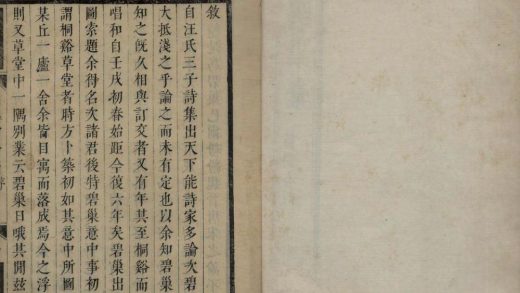 敘
自汪氏三子詩集出天下能詩家多論次碧
大抵淺之乎論之而未有定也以余知碧巢
知之旣久相與訂交者又有年其至桐谿而
唱和自壬戌初春始距今復六年矣碧巢出
圖索題余得名次諸君後特碧巢意中事初
謂桐谿草堂者時方卜築初如其意中所圖
某丘一廬一舍余皆目寓而落成焉今之浮
則又草堂中一隅別業云碧巢日哦其閒茲